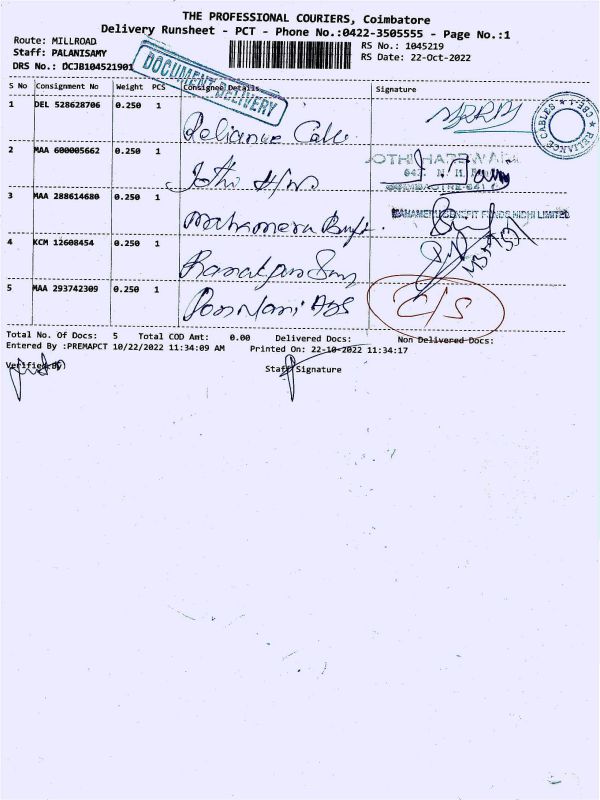 THE PROFESSIONAL COURIERS, Coimbatore
Delivery Runsheet - PCT - Phone No.:0422-3505555 - Page No.:1
Route: MILLROAD
RS No.: 1045219
Staff: PALANISAMY
RS Date: 22-Oct-2022
DRS No.: DCJB104521901
DOCUMENT DELIVERY
S No Consignment No Weight PCS Consignee Details Signature
1 DEL 528628706 0.250 1 Reliance Cable
RELIANCE CABLES
2 MAA 600005662 0.250 1 Jothi H/w
JOTHI HARDWARE
3 MAA 288614680 0.250 1
MAHAMERU BENEFIT FUNDS NIDHI LIMITED
4 KCM 12608454 0.250 1
5 MAA 293742309 0.250 1 Ponmani
Total No. Of Docs: 5 Total COD Amt: 0.00 Delivered Docs: Non Delivered Docs:
Entered By :PREMAPCT 10/22/2022 11:34:09 AM Printed On: 22-10-2022 11:34:17
Verified By) Staff Signature